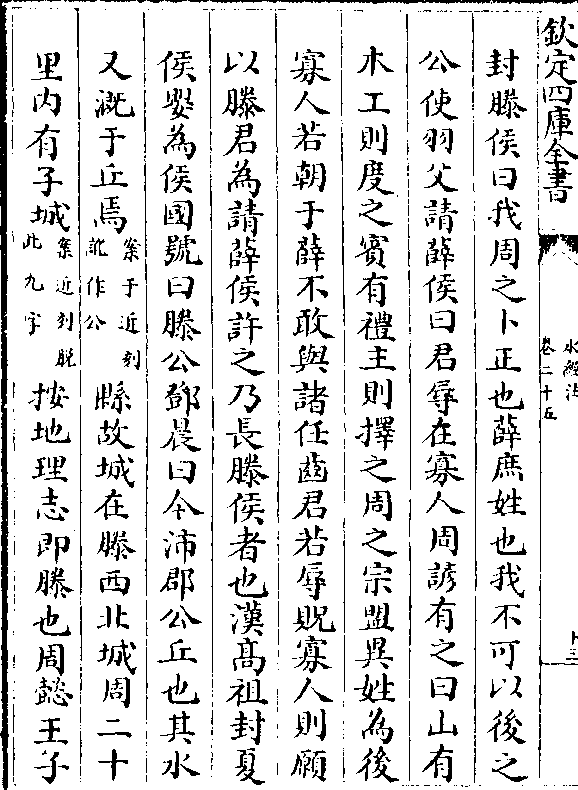 欽定四庫全書
水經注
卷二十五
封滕侯曰我周之卜正也薛庶姓也我不可以後之
公使羽父請薛侯曰君辱在寡人周諺有之曰山有
木工則度之賓有禮主則擇之周之宗盟異姓為後
寡人若朝于薛不敢與諸任齒君若辱貺寡人則願
以滕君為請薛侯許之乃長滕侯者也漢髙祖封夏
侯嬰為侯國號曰滕公鄧晨曰今沛郡公丘也其水
又溉于丘焉案于近刻訛作公縣故城在滕西北城周二十
里内有子城案近刻脱此九字按地理志即滕也周懿王子